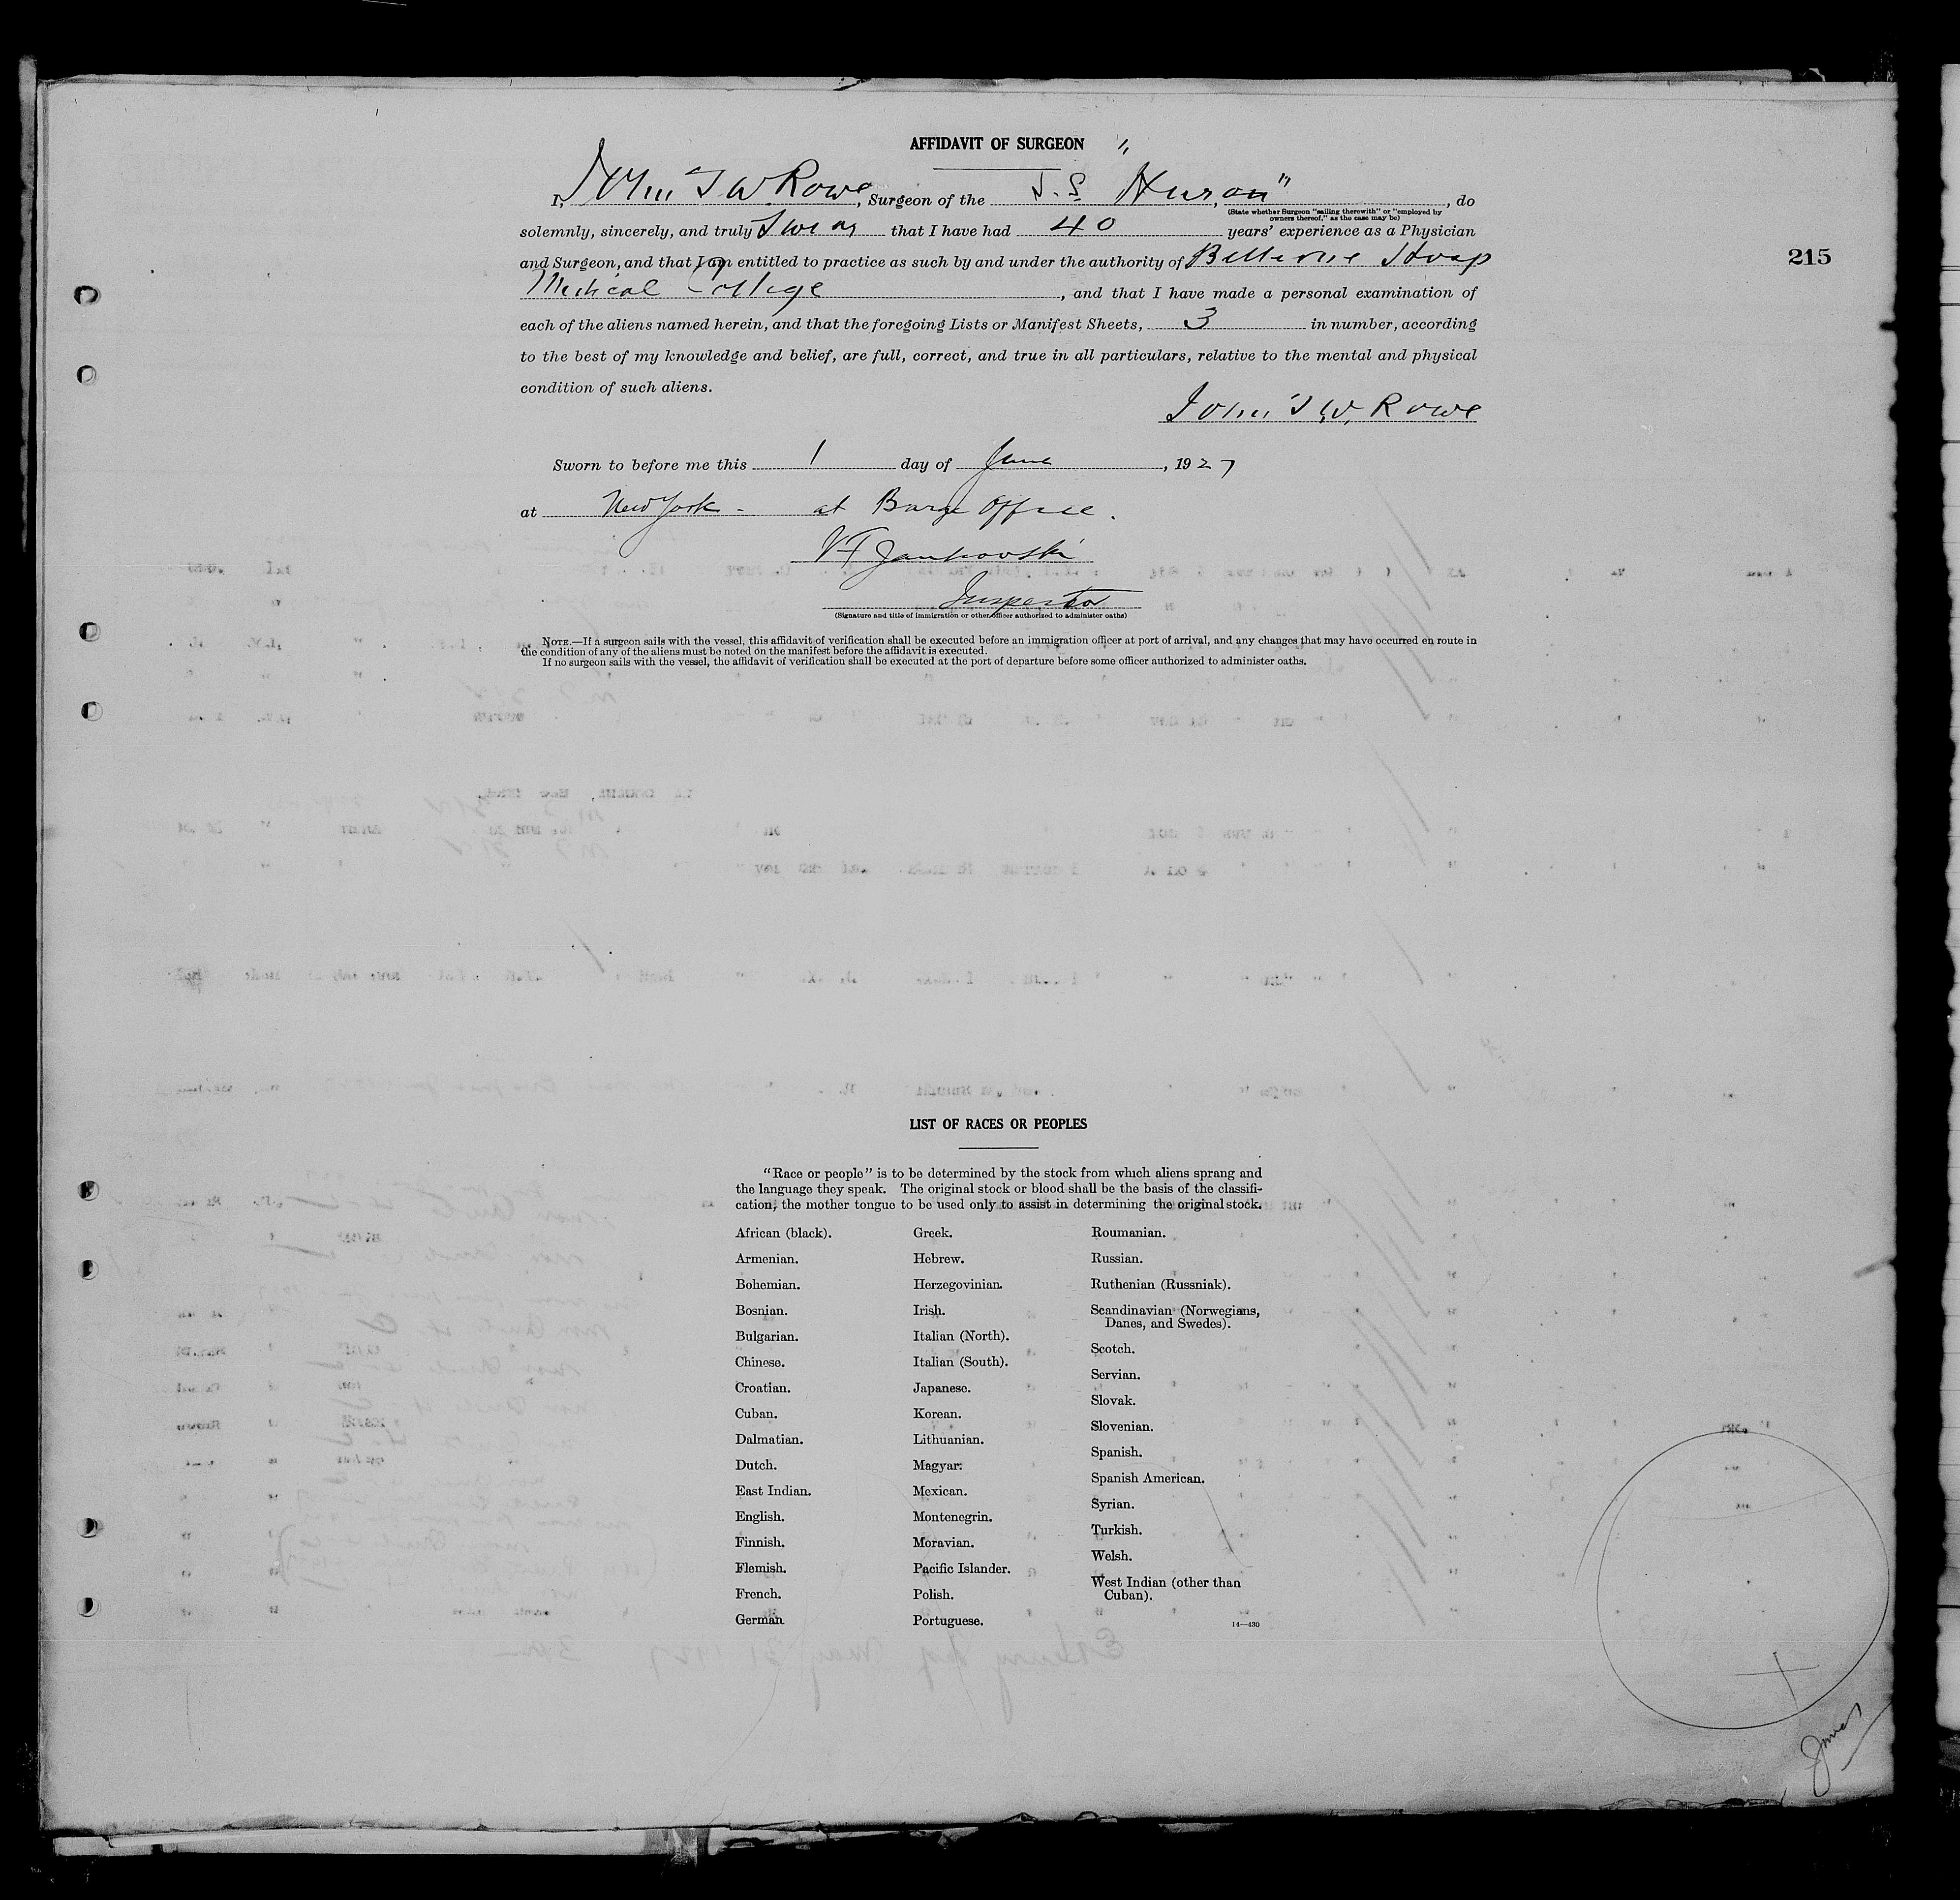 AFFIDAVIT OF SURGEON
I, John T W Rowe, Surgeon of the S.S "Huron", do
(State whether Surgeon "sailing therewith" or "employed by
owners thereof," as the case may be)
solemnly, sincerely, and truly Swear that I have had 40 years' experience as a Physician
and Surgeon, and that I am entitled to practice as such by and under the authority of Bellevue Hosp
Medical College, and that I have made a personal examination of
each of the aliens named herein, and that the foregoing Lists or Manifest Sheets, 3 in number, according
to the best of my knowledge and belief, are full, correct, and true in all particulars, relative to the mental and physical
condition of such aliens.
John T W, Rowe
Sworn to before me this 1 day of June, 1927
at New York - at Barge Office.
VF Jankovski
Inspector
(Signature and title of immigration or other officer authorized to administer oaths)
NOTE.—If a surgeon sails with the vessel, this affidavit of verification shall be executed before an immigration officer at port of arrival, and any changes that may have occurred en route in
the condition of any of the aliens must be noted on the manifest before the affidavit is executed.
If no surgeon sails with the vessel, the affidavit of verification shall be executed at the port of departure before some officer authorized to administer oaths.
215
LIST OF RACES OR PEOPLES
"Race or people" is to be determined by the stock from which aliens sprang and
the language they speak. The original stock or blood shall be the basis of the classifi-
cation, the mother tongue to be used only to assist in determining the original stock.
African (black).
Armenian.
Bohemian.
Bosnian.
Bulgarian.
Chinese.
Croatian.
Cuban.
Dalmatian.
Dutch.
East Indian.
English.
Finnish.
Flemish.
French.
German.
Greek.
Hebrew.
Herzegovinian.
Irish.
Italian (North).
Italian (South).
Japanese.
Korean.
Lithuanian.
Magyar.
Mexican.
Montenegrin.
Moravian.
Pacific Islander.
Polish.
Portuguese.
Roumanian.
Russian.
Ruthenian (Russniak).
Scandinavian (Norwegians,
Danes, and Swedes).
Scotch.
Servian.
Slovak.
Slovenian.
Spanish.
Spanish American.
Syrian.
Turkish.
Welsh.
West Indian (other than
Cuban).
14—430